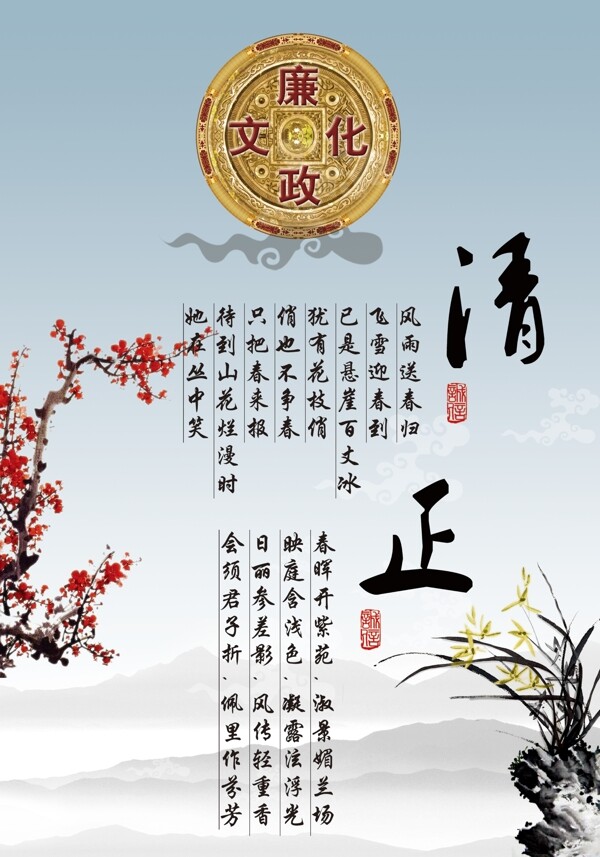 廉政文化
清正
风雨送春归
飞雪迎春到
已是悬崖百丈冰
犹有花枝俏
俏也不争春
只把春来报
待到山花烂漫时
她在丛中笑
春晖开紫苑、淑景媚兰场
映庭含浅色、凝露泫浮光
日丽参差影、风传轻重香
会须君子折、佩里作芬芳